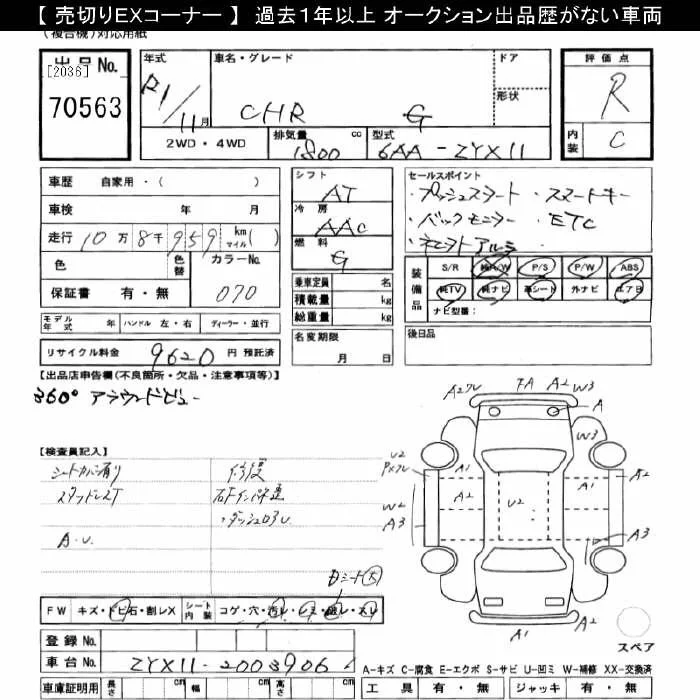 【 売切りEXコーナー 】 過去１年以上 オークション出品歴がない車両
(複合機)対応用紙
出品No.
[2036]
70563
年式
R1/11月
車名・グレード
CHR G
ドア
形状
評価点
R
内装 C
2WD・4WD
排気量 1800 cc
型式 6AA-ZYX11
車歴 自家用・( )
車検 年 月
走行 10万8千959 km マイル( )
色
色替
カラーNo. 070
保証書 有・無
シフト AT
冷房 AAC
燃料 G
乗車定員 名
積載量 kg
総重量 kg
セールスポイント
・プッシュスタート ・スマートキー
・バックモニター ・ETC
装備品
S/R 純A/W P/S P/W ABS
純TV 純ナビ 革シート 外ナビ エアB
ナビ型番：
モデル年式 年 ハンドル 左・右 ディーラー・並行
名変期限 月 日
後日品
リサイクル料金 9620 円 預託済
【出品店申告欄(不良箇所・欠品・注意事項等)】
360° アラウンドビュー
【検査員記入】
シートカバー有り
スタッドレスT
A・U
修復
・ダッシュロアU
Dシート(ス)
FW キズ・トビ石・割レX
シート内装 コゲ・穴・汚レ・シミ・破レ・スレ
登録No.
車台No. ZYX11-2003906
車庫証明用 長さ cm 幅 cm 高さ cm
A2ワレ FA A2 W3
A
W3
U2
PXワレ
A1
A1
A2
W2
A3
A2
U2
A1
A3
A1
A2
スペア
A-キズ C-腐食 E-エクボ S-サビ U-凹ミ W-補修 XX-交換済
工具 有・無 ジャッキ 有・無